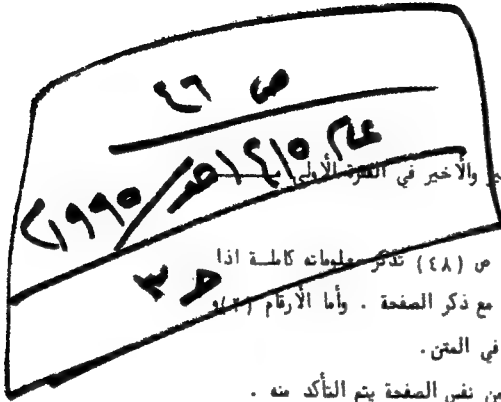 ص ٤٦
عام ١٤١٥هـ/١٩٩٥م
والأخير في الفقرة الأولى
ص (٤٨) تذكر معلوماته كاملة اذا
٣
مع ذكر الصفحة . وأما الأرقام (٢)و
في المتن.
من نفس الصفحة يتم التأكد منه .